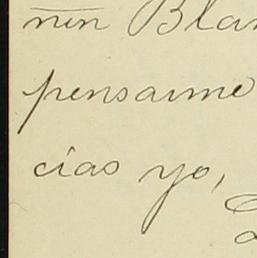 nin Blan
pensarme
cias yo,